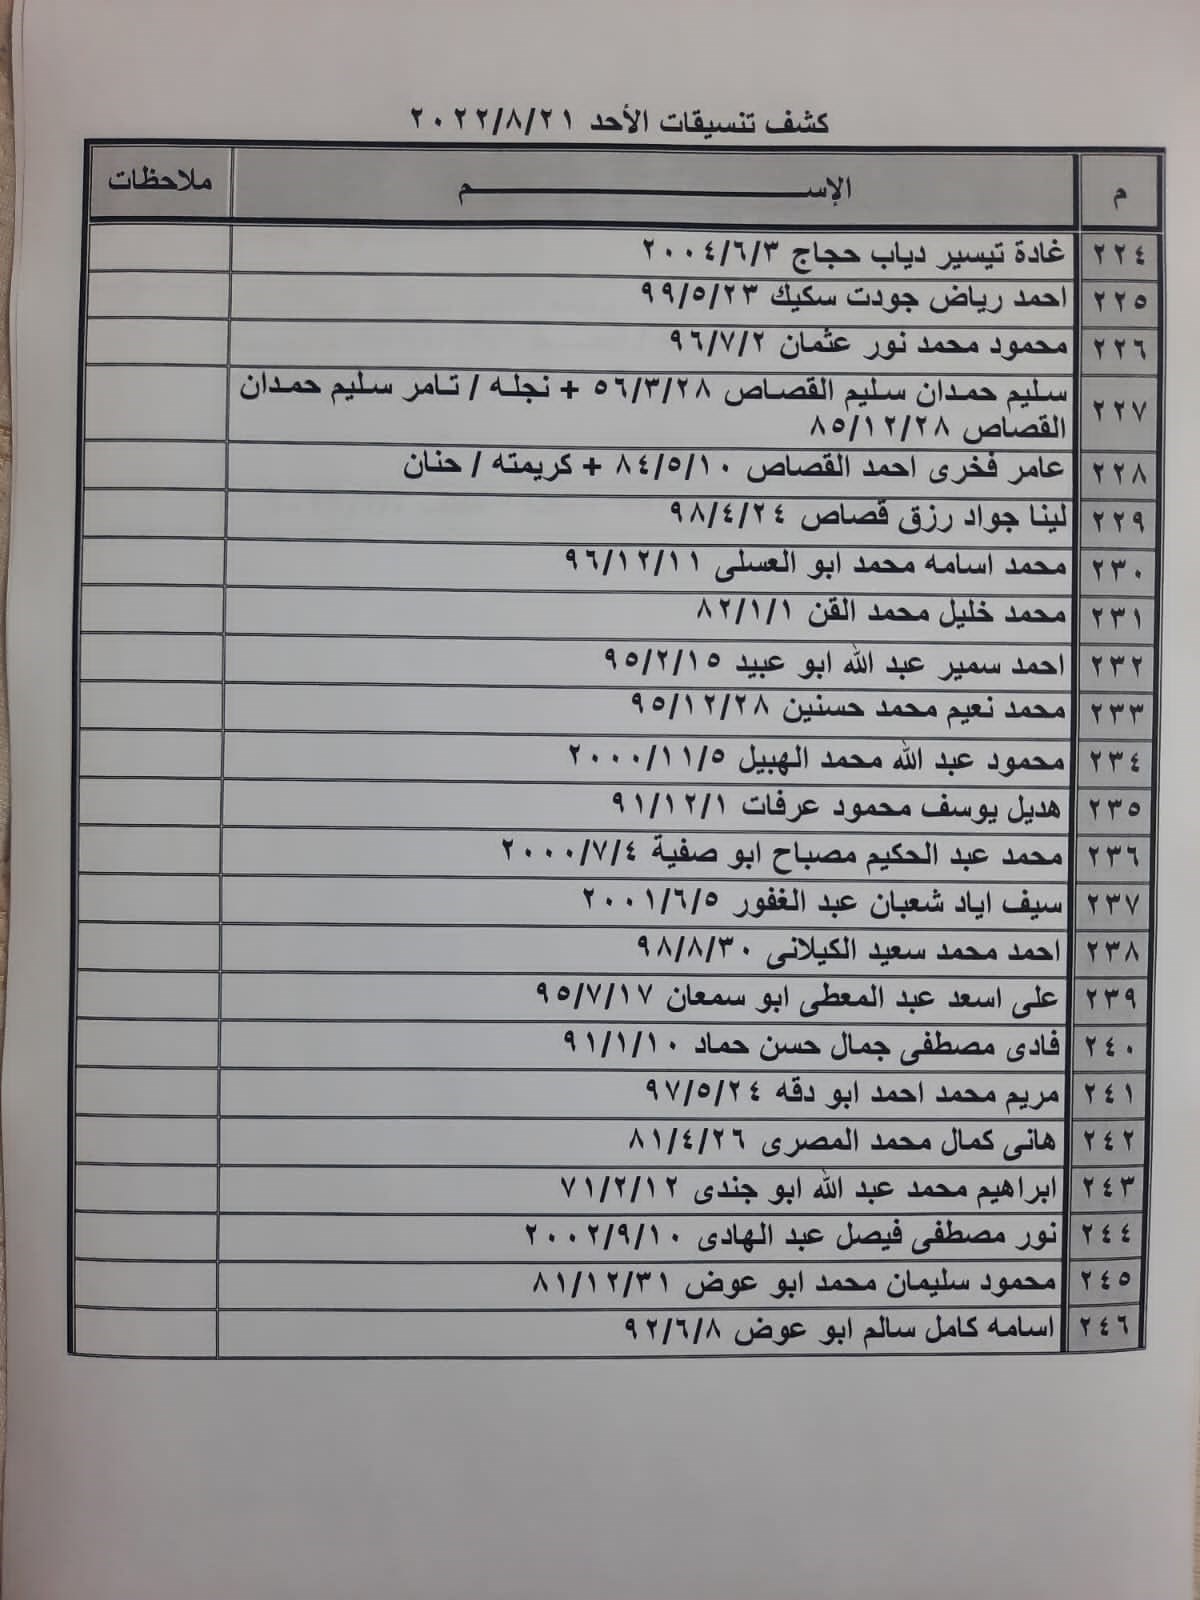 كشف تنسيقات الأحد ٢٠٢٢/٨/٢١
م الإســـــــــم ملاحظات
٢٢٤ غادة تيسير دياب حجاج ٢٠٠٤/٦/٣
٢٢٥ احمد رياض جودت سكيك ٩٩/٥/٢٣
٢٢٦ محمود محمد نور عثمان ٩٦/٧/٢
٢٢٧ سليم حمدان سليم القصاص ٥٦/٣/٢٨ + نجله / تامر سليم حمدان
القصاص ٨٥/١٢/٢٨
٢٢٨ عامر فخرى احمد القصاص ٨٤/٥/١٠ + كريمته / حنان
٢٢٩ لينا جواد رزق قصاص ٩٨/٤/٢٤
٢٣٠ محمد اسامه محمد ابو العسلى ٩٦/١٢/١١
٢٣١ محمد خليل محمد القن ٨٢/١/١
٢٣٢ احمد سمير عبد الله ابو عبيد ٩٥/٢/١٥
٢٣٣ محمد نعيم محمد حسنين ٩٥/١٢/٢٨
٢٣٤ محمود عبد الله محمد الهبيل ٢٠٠٠/١١/٥
٢٣٥ هديل يوسف محمود عرفات ٩١/١٢/١
٢٣٦ محمد عبد الحكيم مصباح ابو صفية ٢٠٠٠/٧/٤
٢٣٧ سيف اياد شعبان عبد الغفور ٢٠٠١/٦/٥
٢٣٨ احمد محمد سعيد الكيلانى ٩٨/٨/٣٠
٢٣٩ على اسعد عبد المعطى ابو سمعان ٩٥/٧/١٧
٢٤٠ فادى مصطفى جمال حسن حماد ٩١/١/١٠
٢٤١ مريم محمد احمد ابو دقه ٩٧/٥/٢٤
٢٤٢ هانى كمال محمد المصرى ٨١/٤/٢٦
٢٤٣ ابراهيم محمد عبد الله ابو جندى ٧١/٢/١٢
٢٤٤ نور مصطفى فيصل عبد الهادى ٢٠٠٢/٩/١٠
٢٤٥ محمود سليمان محمد ابو عوض ٨١/١٢/٣١
٢٤٦ اسامه كامل سالم ابو عوض ٩٢/٦/٨